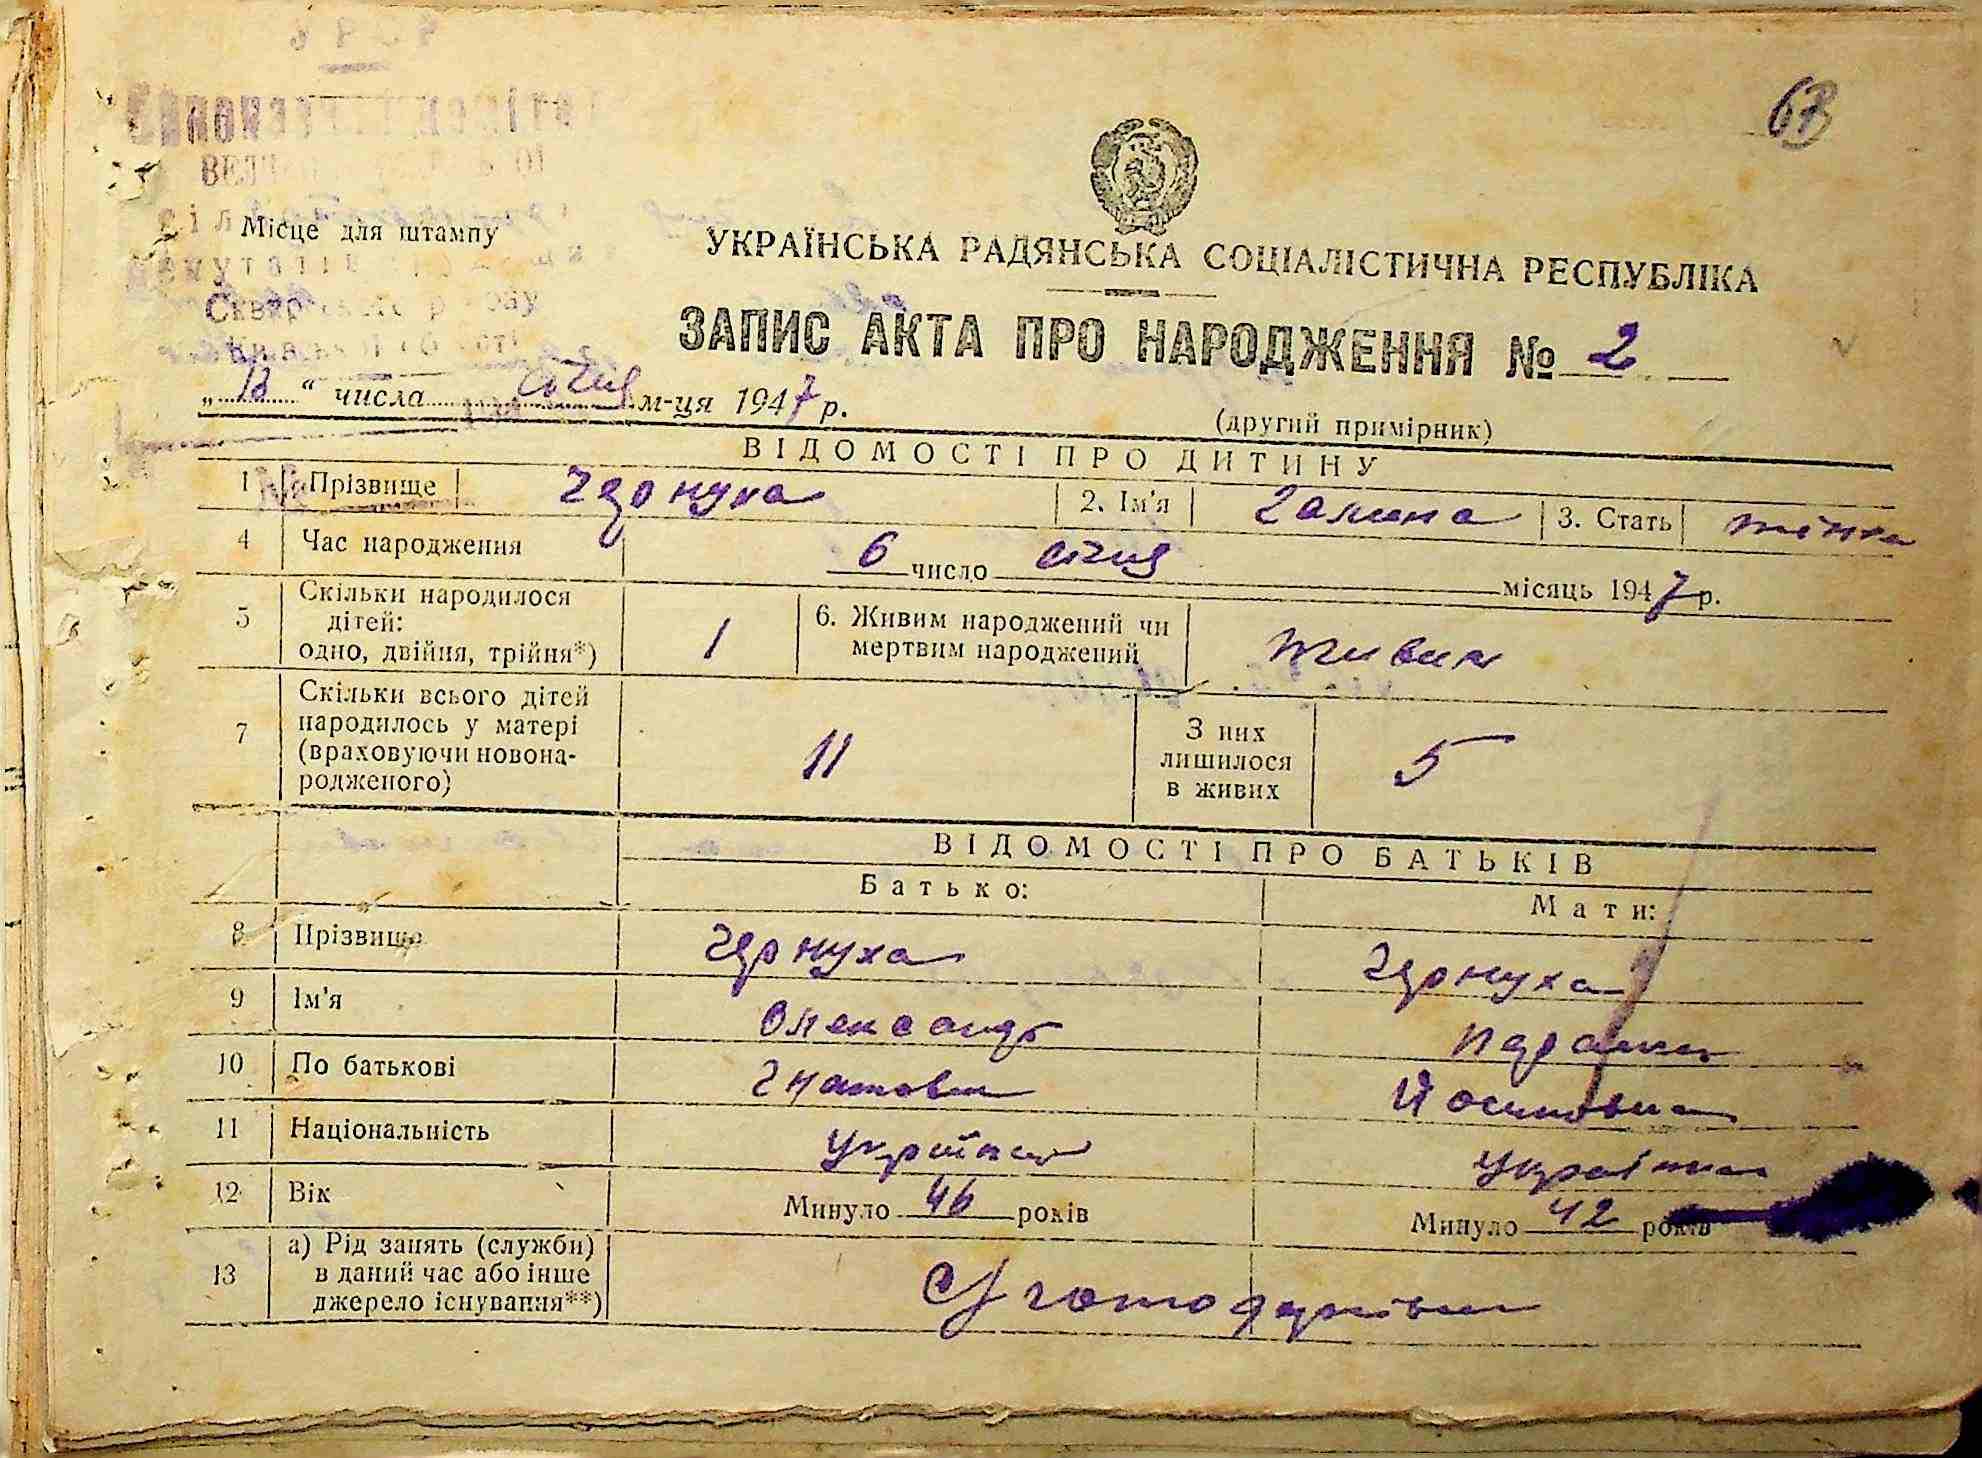 63
Місце для штампу
УКРАЇНСЬКА РАДЯНСЬКА СОЦІАЛІСТИЧНА РЕСПУБЛІКА
ЗАПИС АКТА ПРО НАРОДЖЕННЯ № 2
„13“ числа січня м-ця 1947 р.
(другий примірник)
ВІДОМОСТІ ПРО ДИТИНУ
1 Прізвище Чернуха 2. Ім'я Галина 3. Стать жінка
4 Час народження 6 число січня місяць 1947 р.
5 Скільки народилося дітей: одно, двійня, трійня*) 1 6. Живим народжений чи мертвим народжений живим
7 Скільки всього дітей народилось у матері (враховуючи новонародженого) 11 З них лишилося в живих 5
ВІДОМОСТІ ПРО БАТЬКІВ
Батько: Мати:
8 Прізвище Чернуха Чернуха
9 Ім'я Олександр
10 По батькові Гнатович Йосиповна
11 Національність українець українка
12 Вік Минуло 46 років Минуло 42 років
13 а) Рід занять (служби) в даний час або інше джерело існування**)